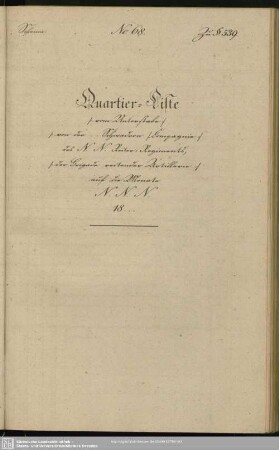 Schema No 68. Zu § 539
Quartier-Liste
/ vom Unterstabe /
/ von der .. Schwadron / Compagnie /
des N N Reiter-Regiments,
/ der Brigade reitender Artillerie /
auf die Monate
N N N
18 ..